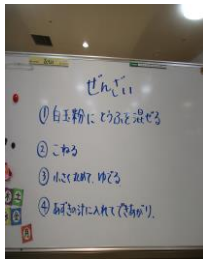 ぜんざい
① 白玉粉に とうふを 混ぜる
② こねる
③ 小さく丸めて、ゆでる
④ あずきの汁に入れて できあがり。